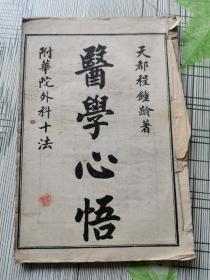 天都程鍾齡著
醫學心悟
附華陀外科十法